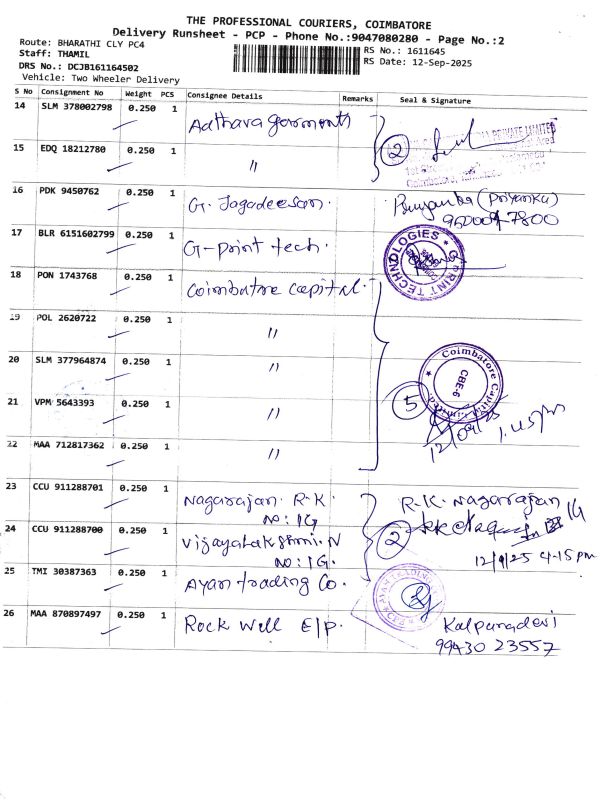 THE PROFESSIONAL COURIERS, COIMBATORE
Delivery Runsheet - PCP - Phone No.:9047080280 - Page No.:2
Route: BHARATHI CLY PC4
Staff: THAMIL
DRS No.: DCJB161164502
Vehicle: Two Wheeler Delivery
RS No.: 1611645
RS Date: 12-Sep-2025
S No Consignment No Weight PCS Consignee Details Remarks Seal & Signature
14 SLM 378002798 0.250 1 Aathava garments 2
PRIVATE LIMITED
15 EDQ 18212780 0.250 1 "
16 PDK 9450762 0.250 1 G. Jagadeesan. (Priyanka)
17 BLR 6151602799 0.250 1 G-print tech.
G PRINT TECHNOLOGIES
18 PON 1743768 0.250 1 Coimbatore capital.
19 POL 2620722 0.250 1 "
20 SLM 377964874 0.250 1 "
Coimbatore Capital Limited
CBE-6
21 VPM 5643393 0.250 1 " 5
12/09/25 1.45pm
22 MAA 712817362 0.250 1 "
23 CCU 911288701 0.250 1 Nagarajan. R.K. R.K. Nagarajan
NO: 1G 1G
24 CCU 911288700 0.250 1 Vijayalakshmi. N 2
NO: 1G. 12/9/25 4-15 pm
25 TMI 30387363 0.250 1 Ayan trading Co.
26 MAA 870897497 0.250 1 Rock Well E/P. Kalpanadevi
99430 23557